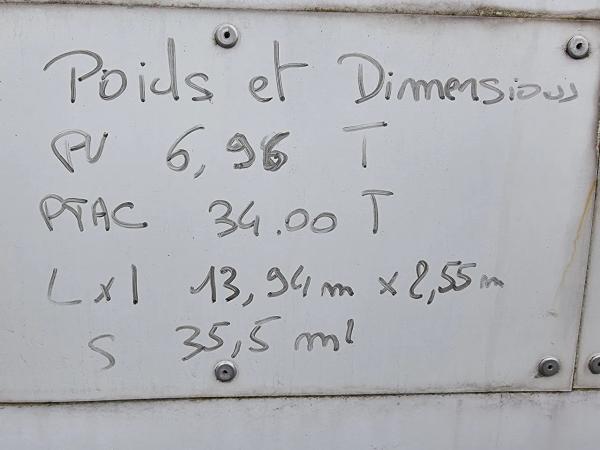 Poids et Dimensions
PV 6,96 T
PTAC 34.00 T
L x l 13,94 m x 2,55 m
S 35,5 m²